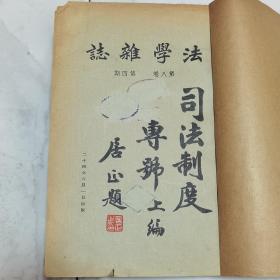 法學雜誌
第八卷 第四期
司法制度
專號上編
居正題
二十四年六月一日出版